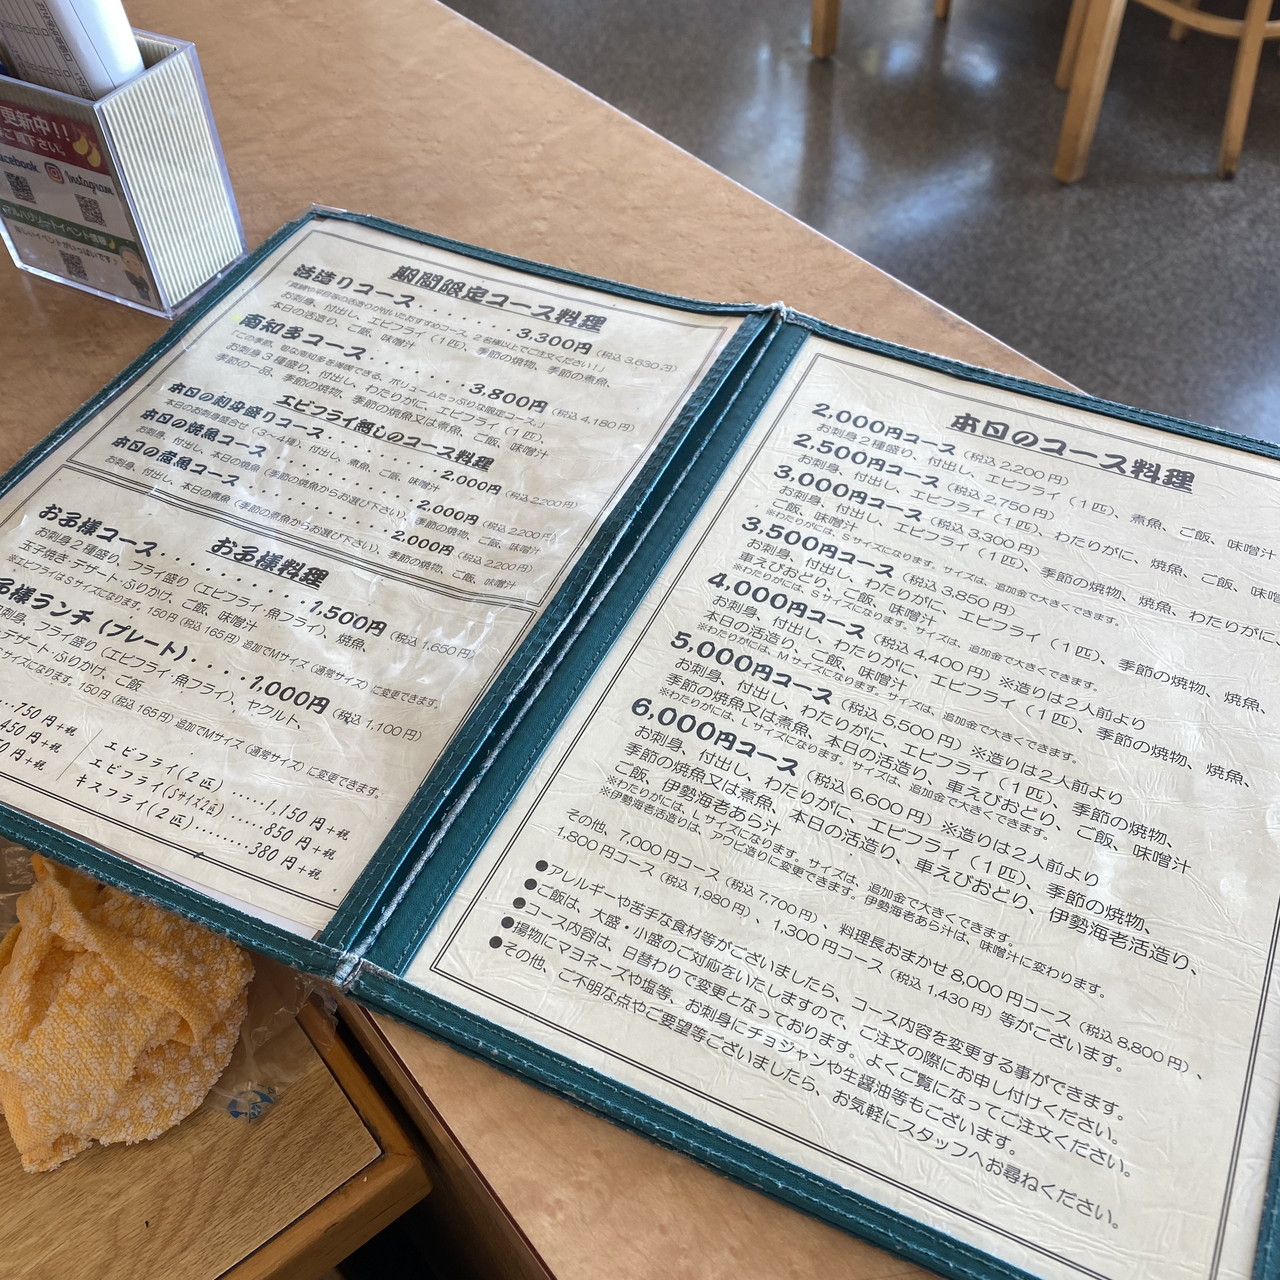 更新中!!
ご覧下さい。
acebook
Instagram
マルハリゾートイベント情報
楽しいイベントがいっぱいです!
期間限定コース料理
活造りコース・・・・・・・・3,300円(税込3,630円)
お刺身、付出し、エビフライ(1匹)、季節の焼物、季節の煮魚、
本日の活造り、ご飯、味噌汁
南知多コース・・・・・・・・3,800円(税込4,180円)
お刺身3種盛り、付出し、わたりがに、エビフライ(1匹)、
季節の一品、季節の焼物、季節の焼魚又は煮魚、ご飯、味噌汁
エビフライ無しのコース料理
本日の刺身盛りコース・・・・・・・2,000円(税込2,200円)
本日のお刺身盛合せ(3~4種)、付出し、煮魚、ご飯、味噌汁
本日の焼魚コース・・・・・・・2,000円(税込2,200円)
お刺身、付出し、本日の焼魚(季節の焼魚からお選び下さい)、季節の焼物、ご飯、味噌汁
本日の煮魚コース・・・・・・・2,000円(税込2,200円)
お刺身、付出し、本日の煮魚(季節の煮魚からお選び下さい)、季節の焼物、ご飯、味噌汁
お子様料理
お子様コース・・・・・・・・1,500円(税込1,650円)
お刺身2種盛り、フライ盛り(エビフライ・魚フライ)、焼魚、
玉子焼き・デザート・ふりかけ、ご飯、味噌汁
※エビフライはSサイズになります。150円(税込165円)追加でMサイズ(通常サイズ)に変更できます。
子様ランチ(プレート)・・・・1,000円(税込1,100円)
刺身、フライ盛り(エビフライ・魚フライ)、ヤクルト、
デザート・ふりかけ、ご飯
サイズになります。150円(税込165円)追加でMサイズ(通常サイズ)に変更できます。
750円+税
450円+税
0円+税
エビフライ(2匹)……1,150円+税
エビフライ(Sサイズ2匹)……850円+税
キスフライ(2匹)……380円+税
本日のコース料理
2,000円コース(税込2,200円)
お刺身2種盛り、付出し、エビフライ(1匹)、煮魚、ご飯、味噌汁
2,500円コース(税込2,750円)
お刺身、付出し、エビフライ(1匹)、わたりがに、焼魚、ご飯、味噌
3,000円コース(税込3,300円)
お刺身、付出し、エビフライ(1匹)、季節の焼物、焼魚、わたりがに、
ご飯、味噌汁
※わたりがには、Sサイズになります。サイズは、追加金で大きくできます。
3,500円コース(税込3,850円)
お刺身、付出し、わたりがに、エビフライ(1匹)、季節の焼物、焼魚、
車えびおどり、ご飯、味噌汁
※わたりがには、Sサイズになります。サイズは、追加金で大きくできます。
4,000円コース(税込4,400円)※造りは2人前より
お刺身、付出し、わたりがに、エビフライ(1匹)、季節の焼物、焼魚、
本日の活造り、ご飯、味噌汁
※わたりがには、Mサイズになります。サイズは、追加金で大きくできます。
5,000円コース(税込5,500円)※造りは2人前より
お刺身、付出し、わたりがに、エビフライ(1匹)、季節の焼物、
季節の焼魚又は煮魚、本日の活造り、車えびおどり、ご飯、味噌汁
※わたりがには、Lサイズになります。サイズは、追加金で大きくできます。
6,000円コース(税込6,600円)※造りは2人前より
お刺身、付出し、わたりがに、エビフライ(1匹)、季節の焼物、
季節の焼魚又は煮魚、本日の活造り、車えびおどり、伊勢海老活造り、
ご飯、伊勢海老あら汁
※わたりがには、Lサイズになります。サイズは、追加金で大きくできます。
※伊勢海老活造りは、アワビ造りに変更できます。伊勢海老あら汁は、味噌汁に変わります。
その他、7,000円コース(税込7,700円)、料理長おまかせ8,000円コース(税込8,800円)、
1,800円コース(税込1,980円)、1,300円コース(税込1,430円)等がございます。
●アレルギーや苦手な食材等がございましたら、コース内容を変更する事ができます。
●ご飯は、大盛・小盛のご対応をいたしますので、ご注文の際にお申し付けください。
●コース内容は、日替わりで変更となっております。よくご覧になってご注文ください。
●揚物にマヨネーズや塩等、お刺身にチョジャンや生醤油等もございます。
●その他、ご不明な点やご要望等ございましたら、お気軽にスタッフへお尋ねください。